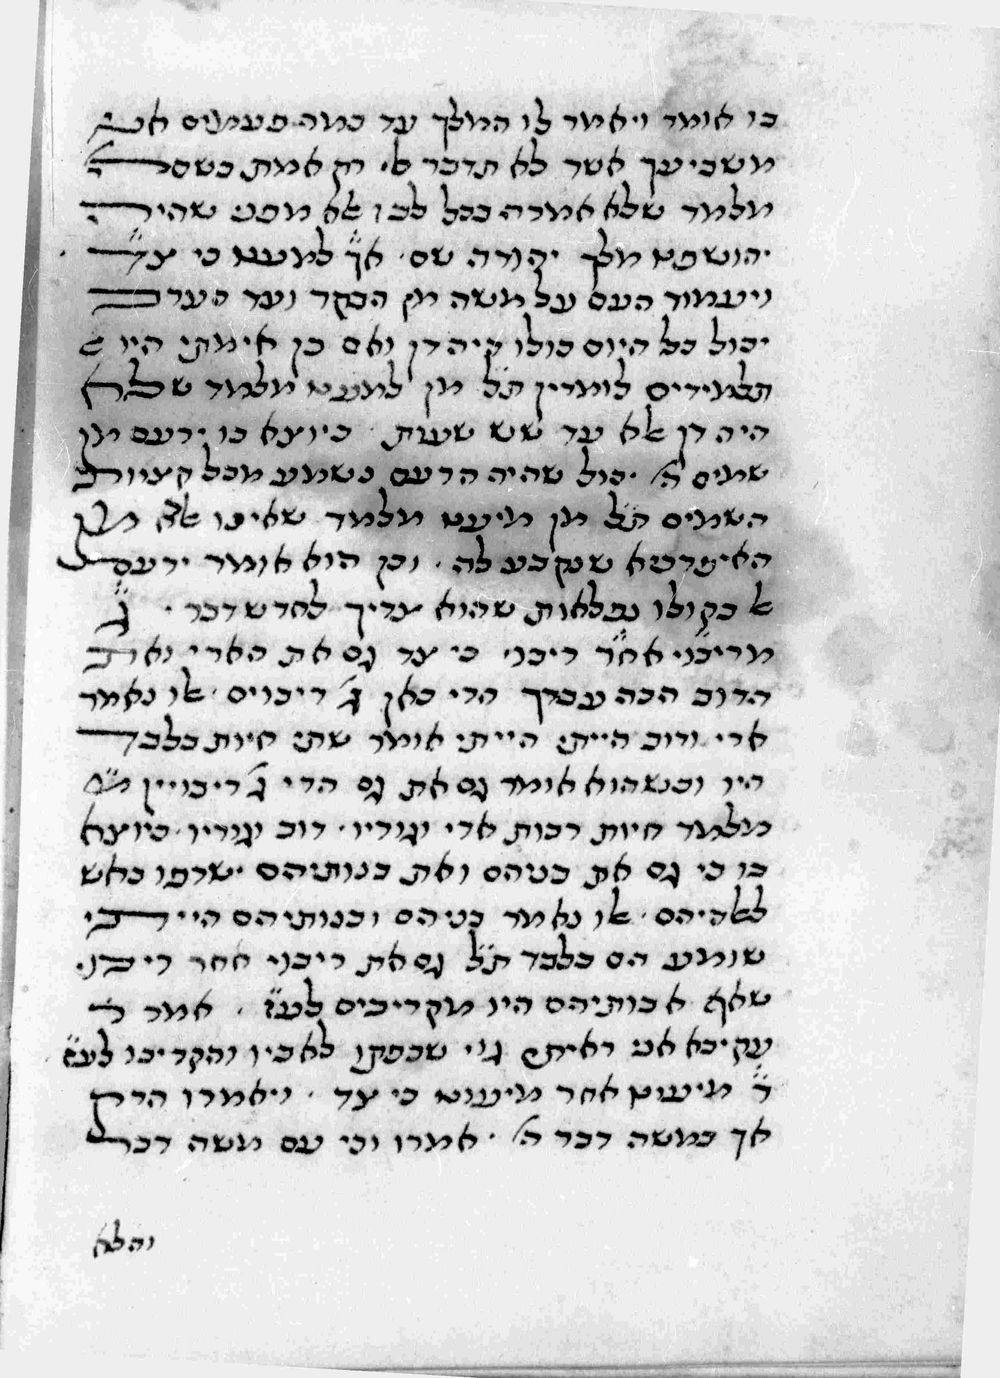 בו אומר ויאמר לו המלך עד כמה פעמים אני
משביעך אשר לא תדבר לי רק אמת בשם ה'
מלמד שלא אמרה בכל לבו אלא מפני שהיה
יהושפט מלך יהודה שם · אך למעט כי צד
ויעמוד העם על משה מן הבקר ועד הערב
יכול כל היום כולו היה דן ואם כן אימתי היו
תלמידים לומדין תל מן למעט מלמד שלא
היה דן אלא עד שש שעות · כיוצא בו ירעם מן
שמים ה' יכול שהיה הרעם נשמע מכל קצוות
השמים תל מן מיעט מלמד שאינו אלא מן
האיפרטיא שנקבע לה · וכן הוא אומר ירעם
אל בקולו נפלאות שהוא צריך לחדש דבר · ג
מריבוי אחר ריבוי כי צד גם את הארי גם את
הדוב הכה עבדך הרי כאן ג' ריבויים · אלו נאמר
ארי ודוב הייתי הייתי אומר שתי חיות בלבד
היו וכשהוא אומר גם את גם הרי ג' ריבויין
מלמד חיות רבות ארי וגוריו · דוב וגוריו · כיוצא
בו כי גם את בניהם ואת בנותיהם ישרפו באש
לאלהיהם · אלו נאמר בניהם ובנותיהם הייתי
שומע הם בלבד תל גם את ריבוי אחר ריבוי
שאף אבותיהם היו מקריבים לעז · אמר ר
עקיבא אני ראיתי גוי שכפתו לאביו והקריבו לעז
ד מיעוט אחר מיעוט כי צד · ויאמרו הרק
אך במשה דבר ה' · אמרו וכי עם משה דבר
והלא